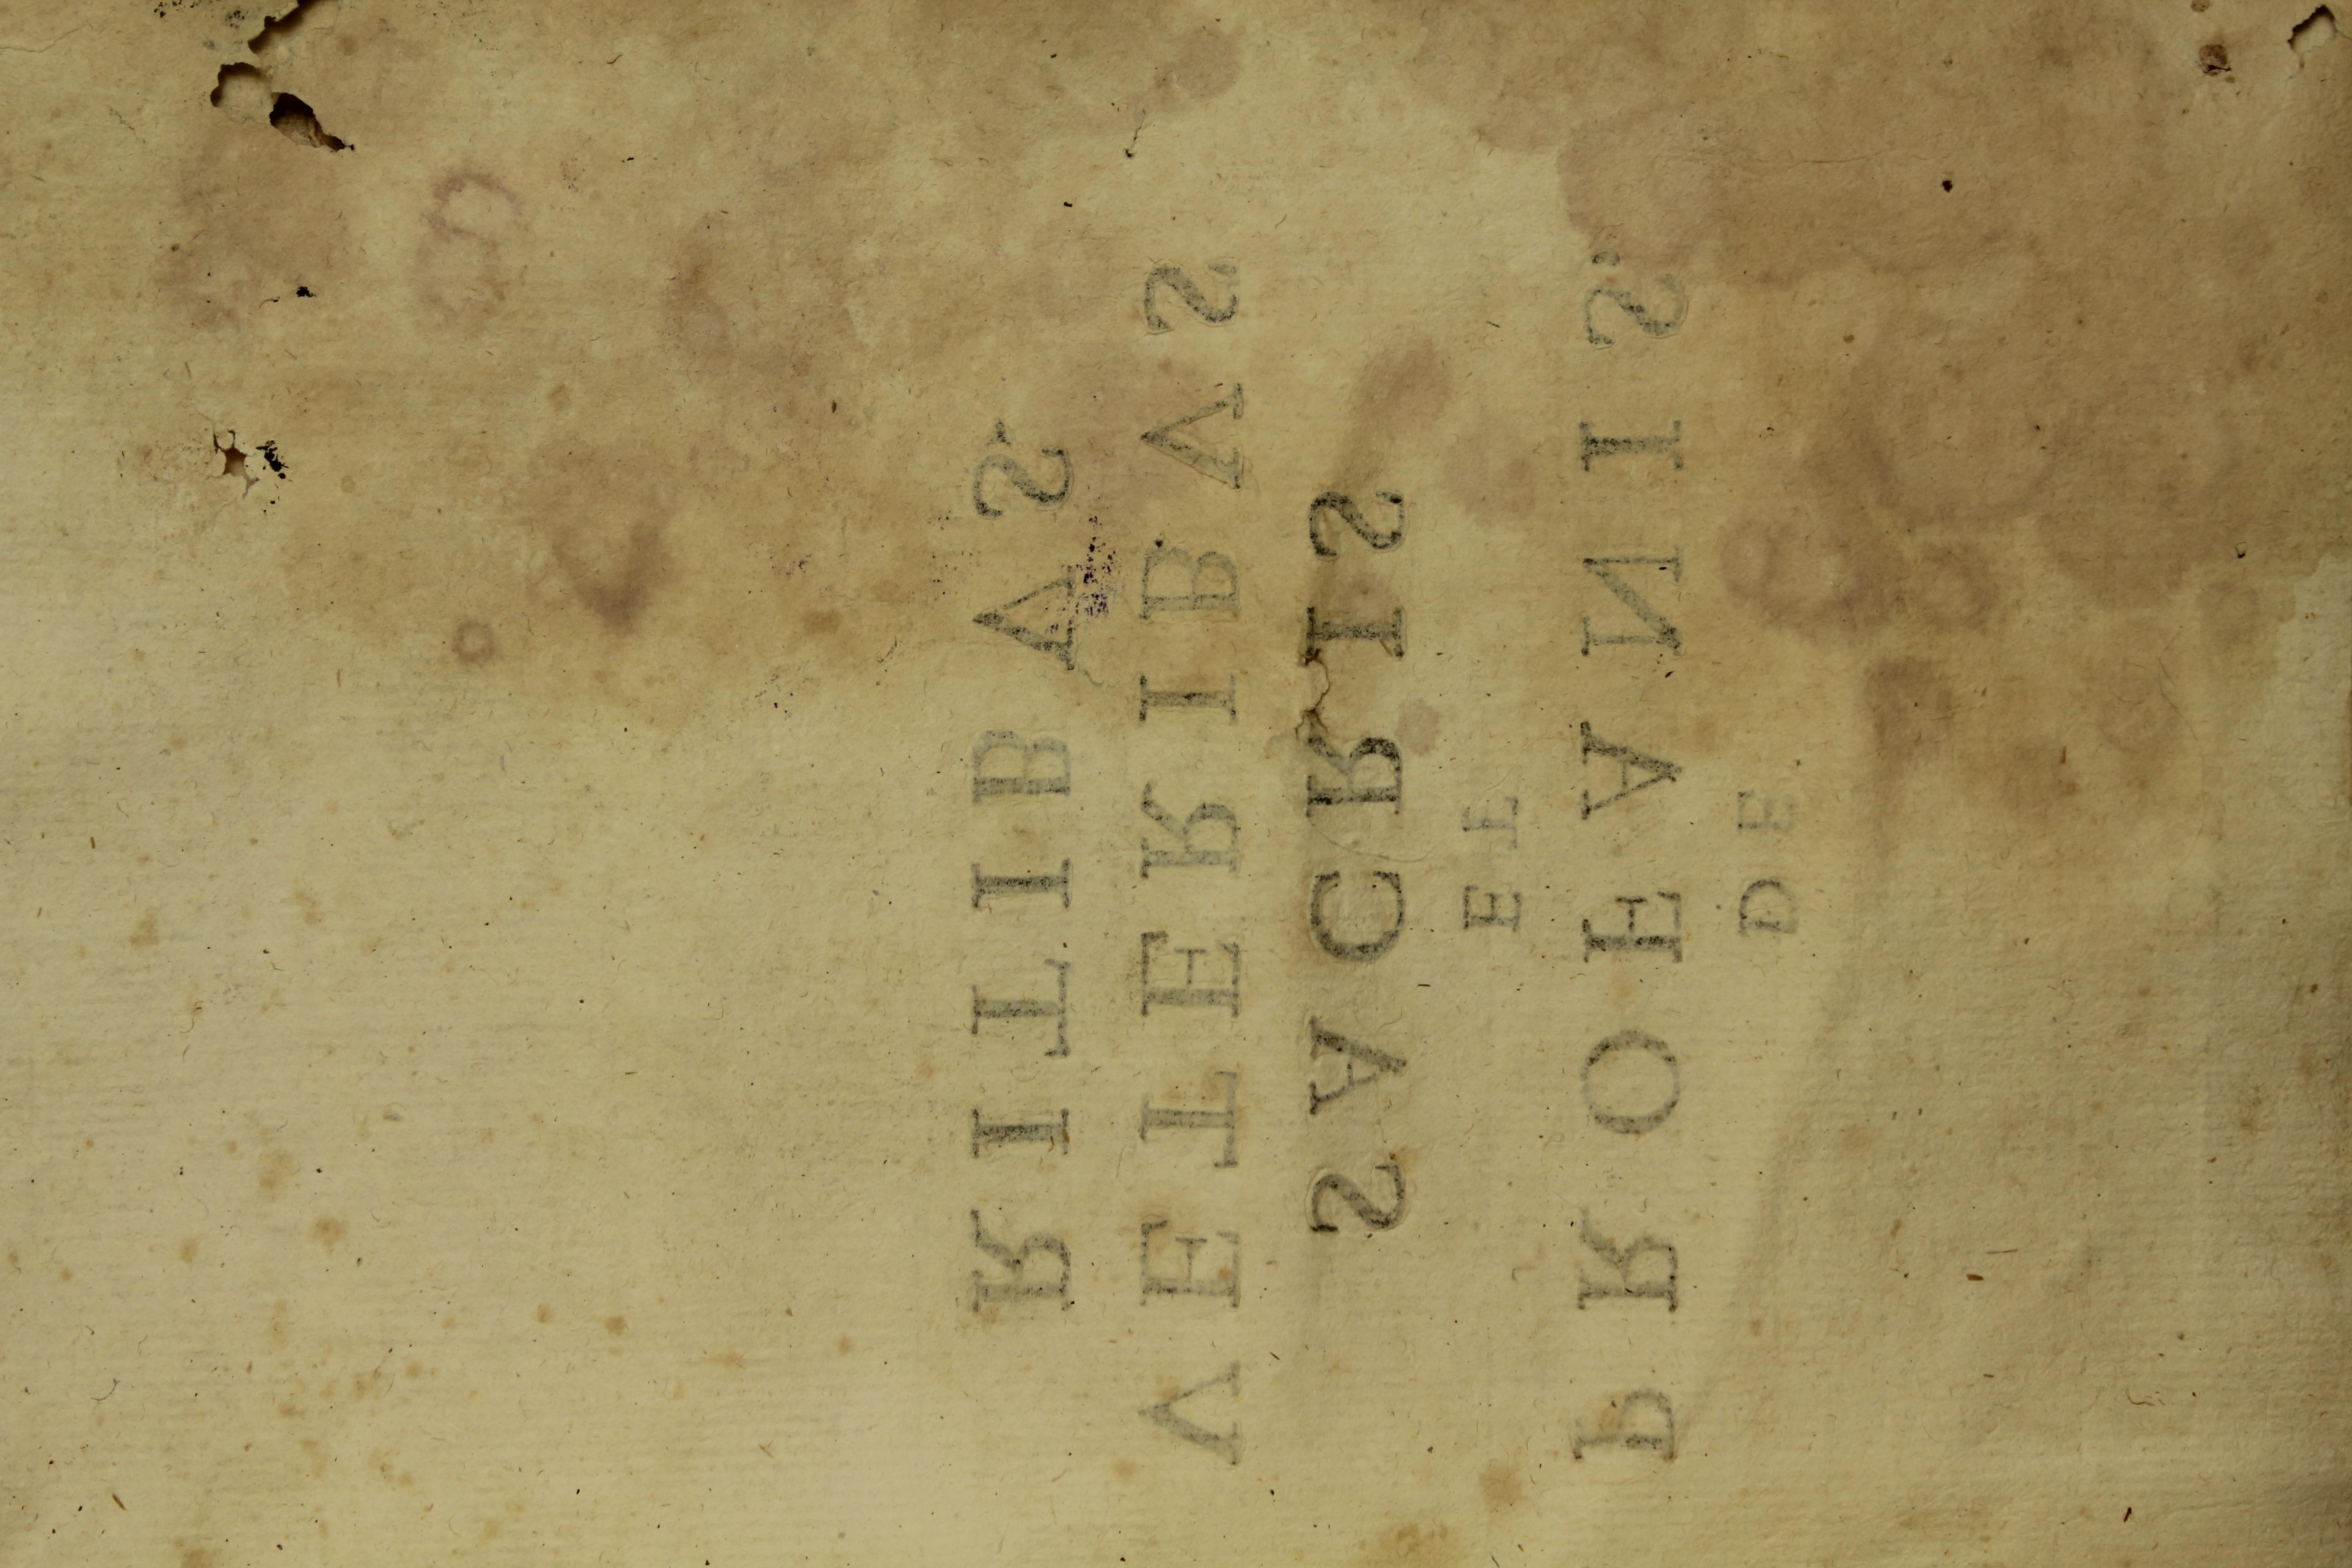 DE
PROFANIS.
ET
SACRIS
VETERIBVS
RITIBVS.